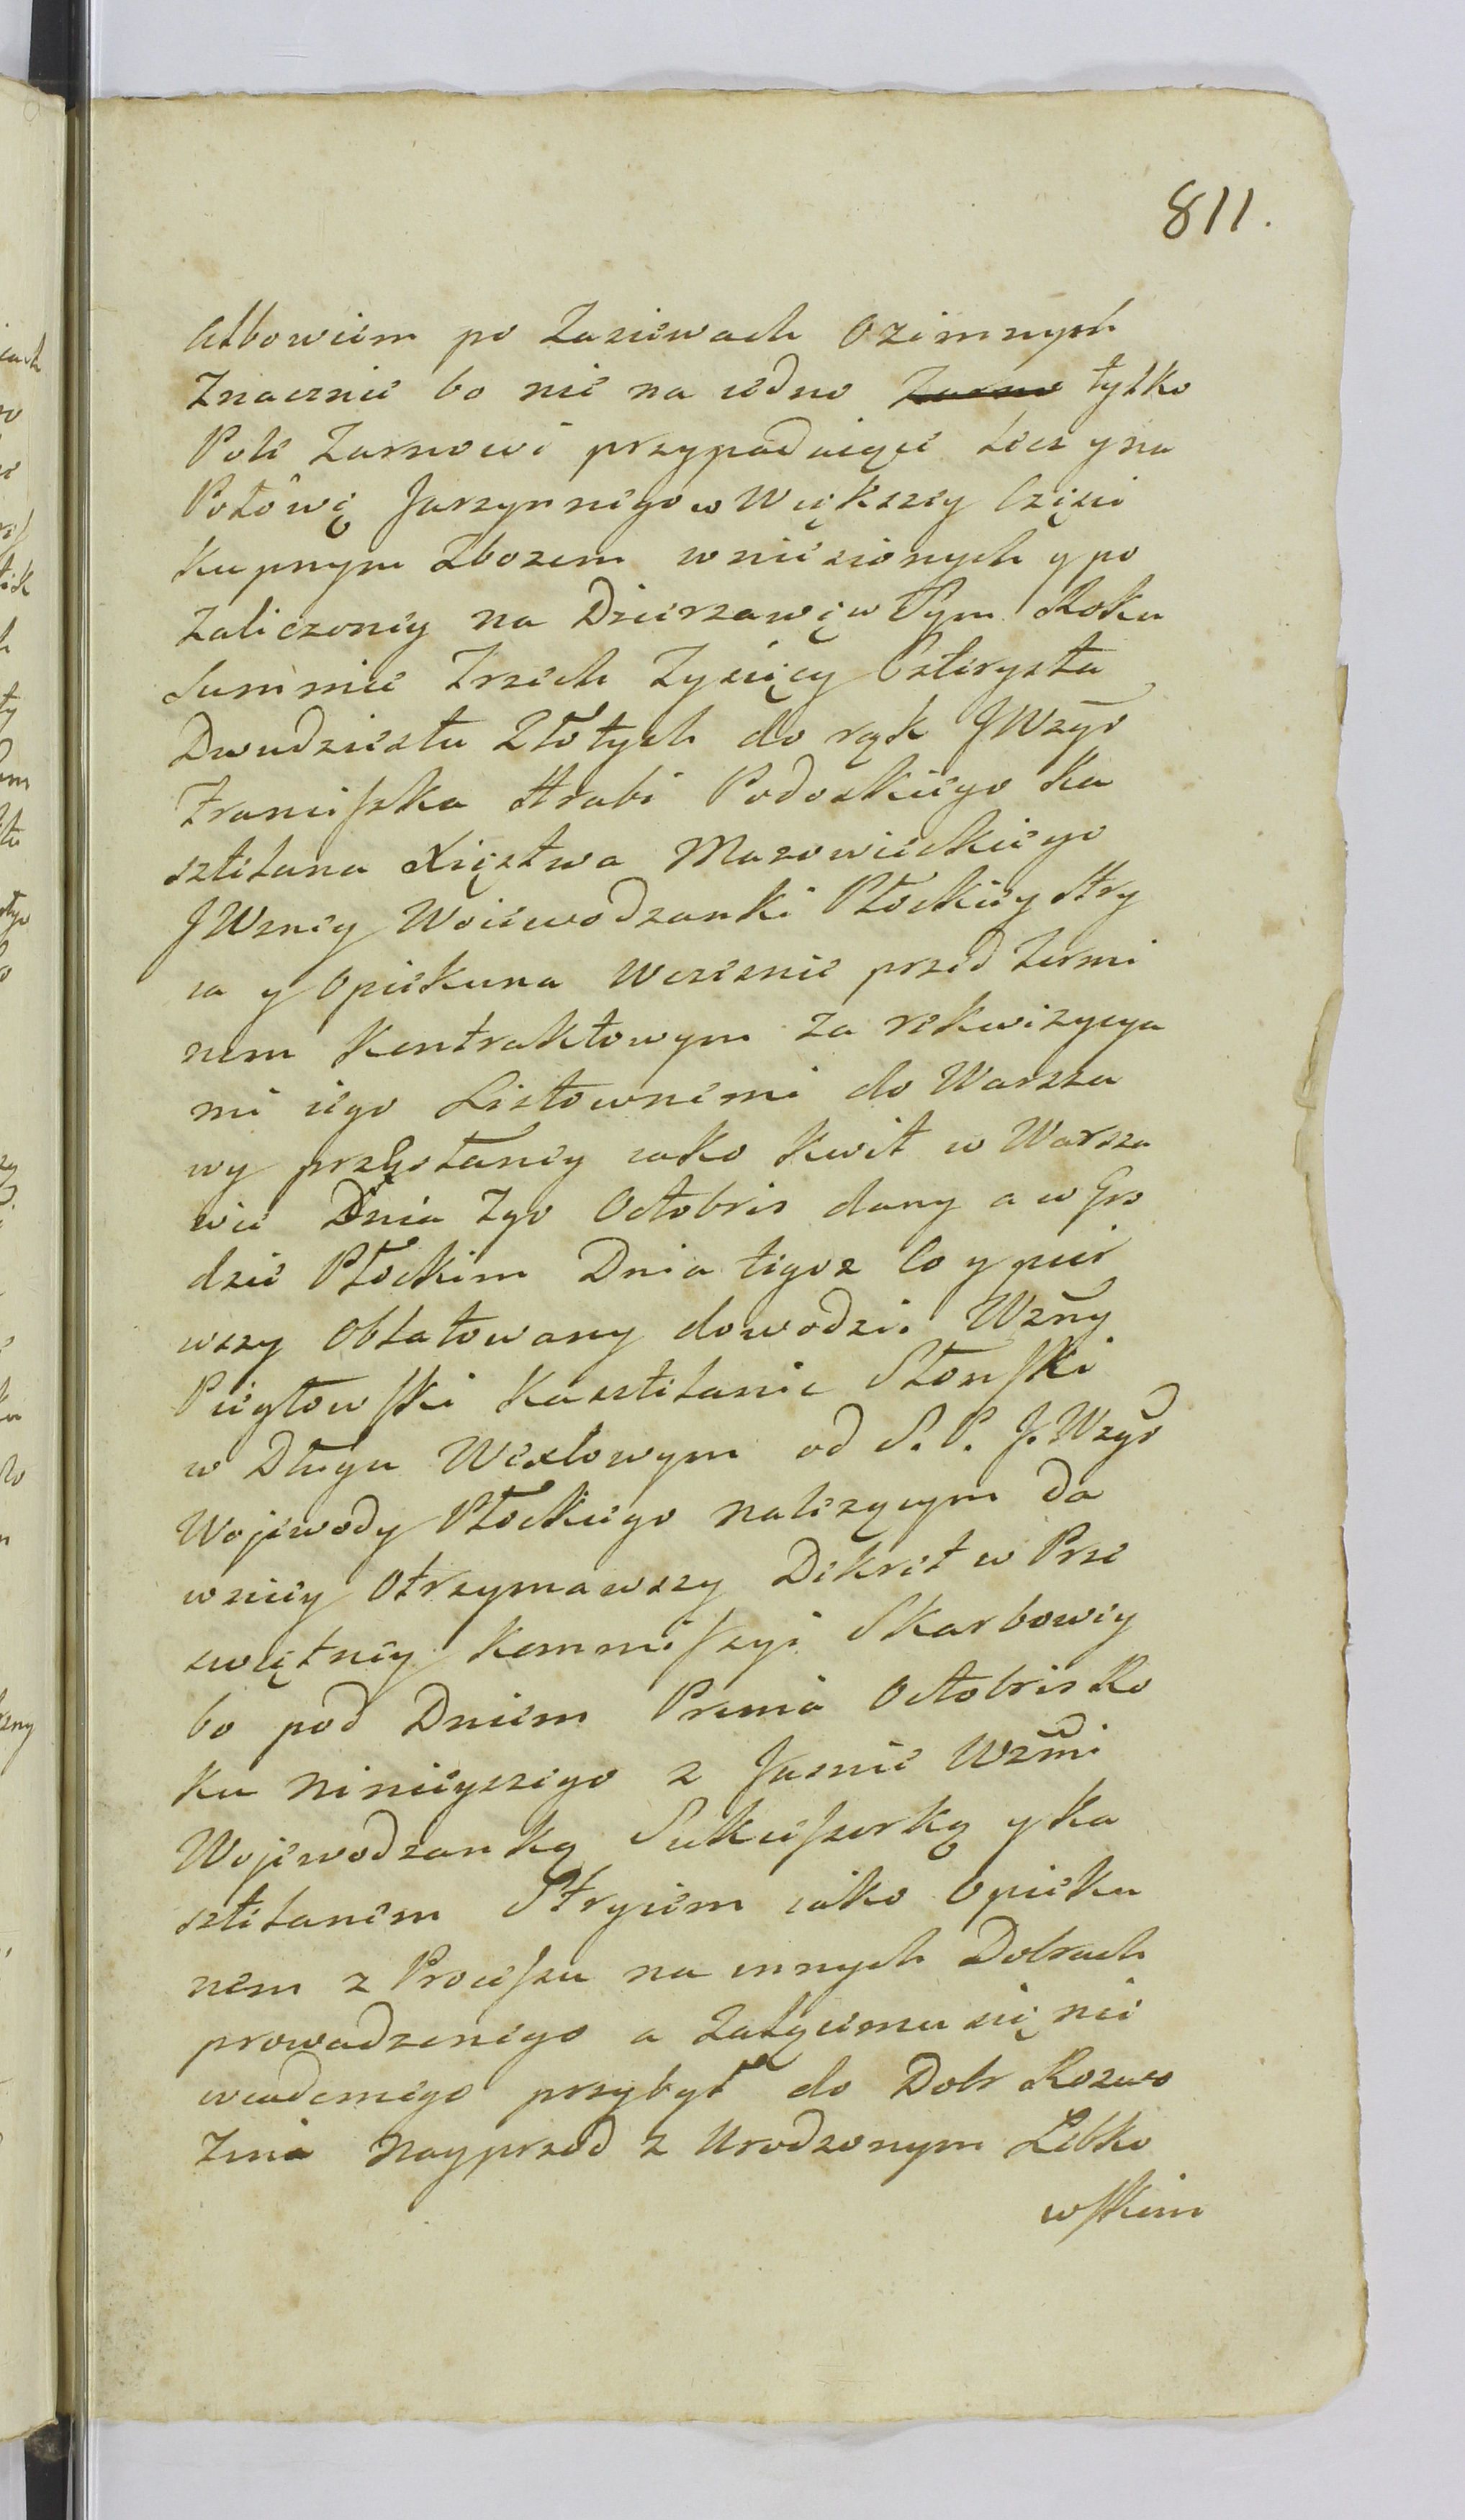 811.
Albowiem po Zasiewach Ozimnych
Znacznie bo nie na iedno Zarno tylko
Pole Zarnowi przypadaiące lecz y na
Połowę Jarzynnego w Większey Części
kupnym Zbozem wniesionych y po
Zaliczoney na Dzierzawę w Tym Roku
Summie Trzech Tysięcy Czterysta
Dwudziestu Złotych do rąk JWzgo
Franciszka Hrabi Podoskiego Ka
sztelana Xięstwa Mazowieckiego
JWzney Woiewodzanki Płockiey Stry
ia y Opiekuna Wcześnie przed Termi
nem Kontraktowym za rekwizycya
mi iego Listownemi do Warsza
wy przesłaney iako Kwit w Warsza
wie Dnia 7go Octobris dany a w Gro
dzie Płockim Dnia tegoz Co y pier
wszy Oblatowany dowodzi. Wzny
Pięgłowski Kasztelanic Słonski
w Długu Wexlowym od S. P. J. Wzgo
Wojewody Płockiego należącym Da
wniey Otrzymawszy Dekret w Prze
swiętney Kommissyi Skarbowey
bo pod Dniem Prima Octobris Ro
ku Ninieyszego z Jasnie Wzmi
Wojewodzanką Sukcessorką y Ka
sztelanem Stryiem iako Opieku
nem z Processu na innych Dobrach
prowadzonego a Zalącemu się nie
wiadomego przybył do Dobr Rozwo
zina Nayprzod z Urodzonym Lebko
wskim